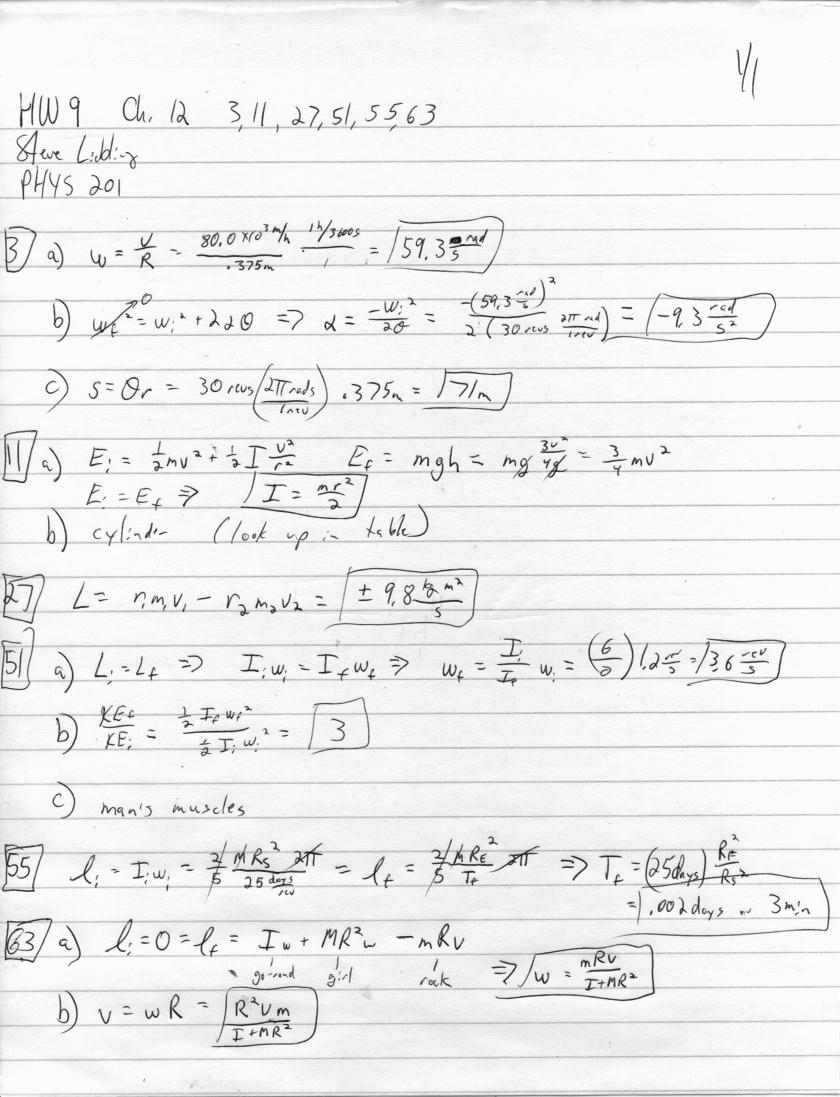 1/1
HW 9 Ch. 12 3, 11, 27, 51, 55, 63
Steve Liebling
PHYS 201
3 a) w = v/R = 80.0 x10³ m/h / .375m 1h/3600s / 1 = 59.3 rad/s
b) wf² = wi² + 2αθ => α = -wi²/2θ = -(59.3 rad/s)² / 2 (30 revs 2π rad/1rev) = -9.3 rad/s²
c) s = θr = 30 revs (2π rads/1rev) .375m = 71m
11 a) Ei = ½mv² + ½ I v²/r² Ef = mgh = mg 3v²/4g = ¾ mv²
Ei = Ef => I = mr²/2
b) cylinder (look up in table)
27 L = r₁m₁v₁ - r₂m₂v₂ = ± 9.8 kg m²/s
51 a) Li = Lf => Iiwi = Ifwf => wf = Ii/If wi = (6/2) 1.2 rev/s = 3.6 rev/s
b) KEf/KEi = ½ If wf² / ½ Ii wi² = 3
c) man's muscles
55 li = Iiwi = 2/5 M Rs² 2π / 25 days/rev = lf = 2/5 M RE² / Tf 2π => Tf = (25 days) RE²/Rs²
= .002 days ~ 3 min
63 a) li = 0 = lf = Iw + MR²w - mRv
go-round girl rock => w = mRv / I+MR²
b) v = wR = R²vm / I+MR²